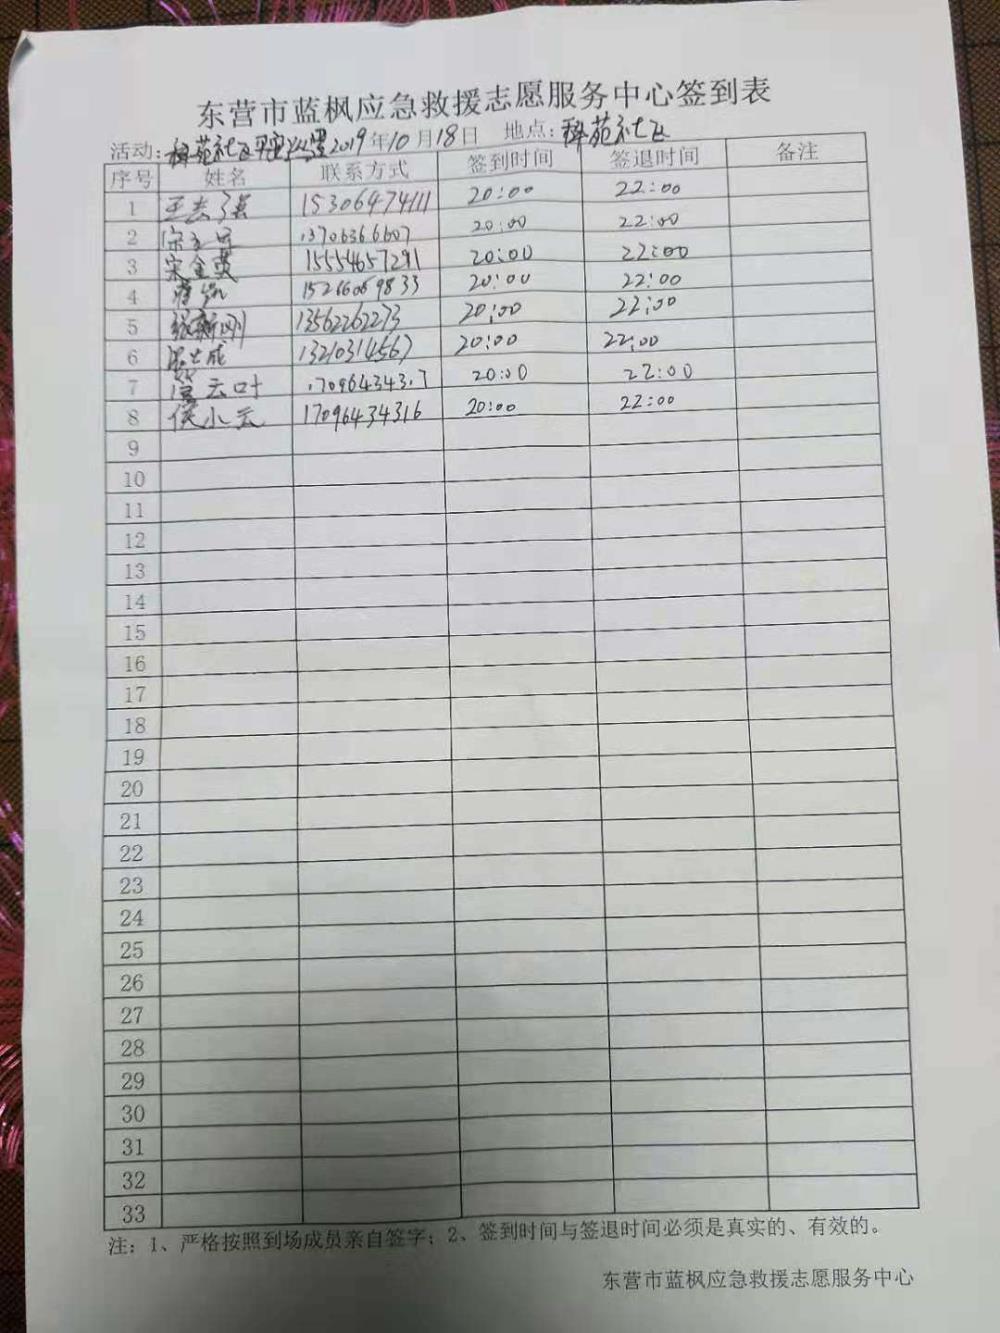 东营市蓝枫应急救援志愿服务中心签到表
活动：科苑社区平安 2019年10月18日 地点：科苑社区
序号 姓名 联系方式 签到时间 签退时间 备注
1 15306474111 20:00 22:00
2 13706366607 20:00 22:00
3 宋金英 15554657291 20:00 22:00
4 15266069833 20:00 22:00
5 张新刚 13562262273 20:00 22:00
6 13210314567 20:00 22:00
7 云叶 20:00 22:00
8 侯小云 17096434316 20:00 22:00
9
10
11
12
13
14
15
16
17
18
19
20
21
22
23
24
25
26
27
28
29
30
31
32
33
注：1、严格按照到场成员亲自签字；2、签到时间与签退时间必须是真实的、有效的。
东营市蓝枫应急救援志愿服务中心